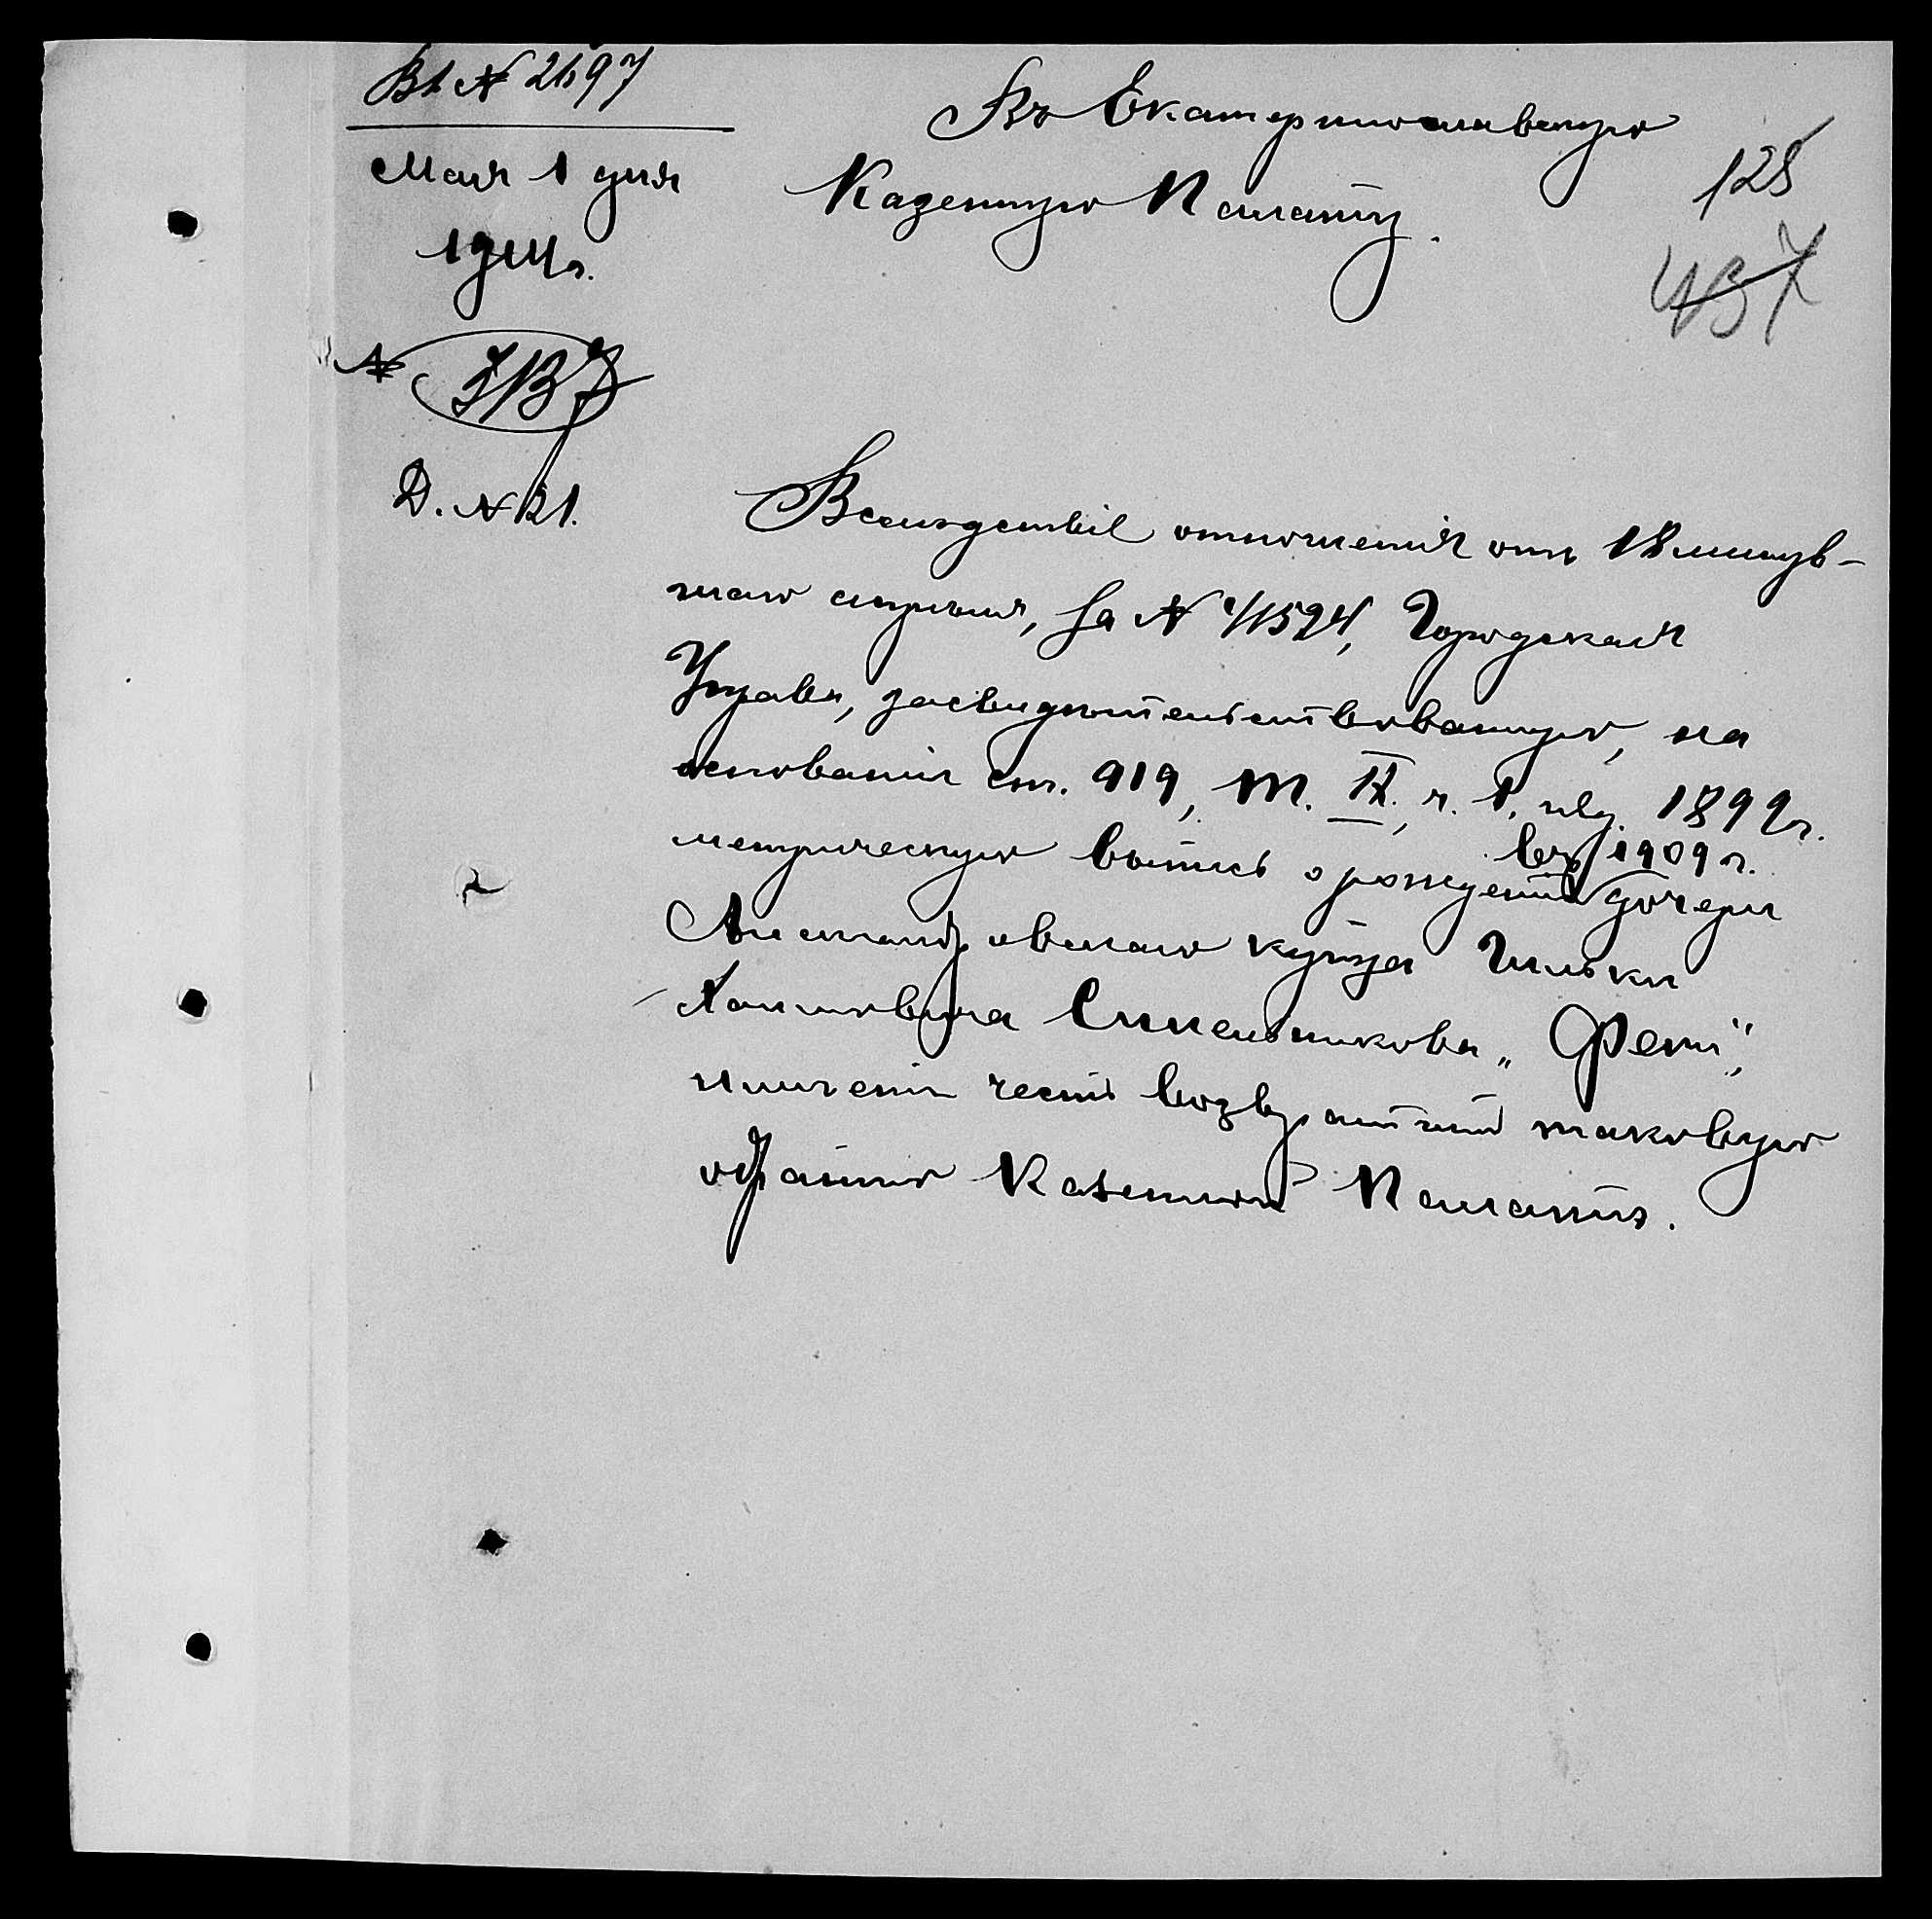 Вх № 2697
Мая 1 дня
1911 г.
№ 3137
Д. № 21.
Въ Екатеринославскую
Казенную Палату.
128
437
Вслѣдствіе отношенія отъ 18 минув-
шаго апрѣля, за № 41594, Городская
Управа, засвидѣтельствованную, на
основаніи ст. 919, т. IX, ч. 1, изд. 1899 г.
метрическую выпись о рожденіи въ 1909 г. дочери
Александровскаго купца Гильки
Хаимовича Синельникова „Фени“,
имѣетъ честь возвратить таковую
обратно Казенной Палатѣ.